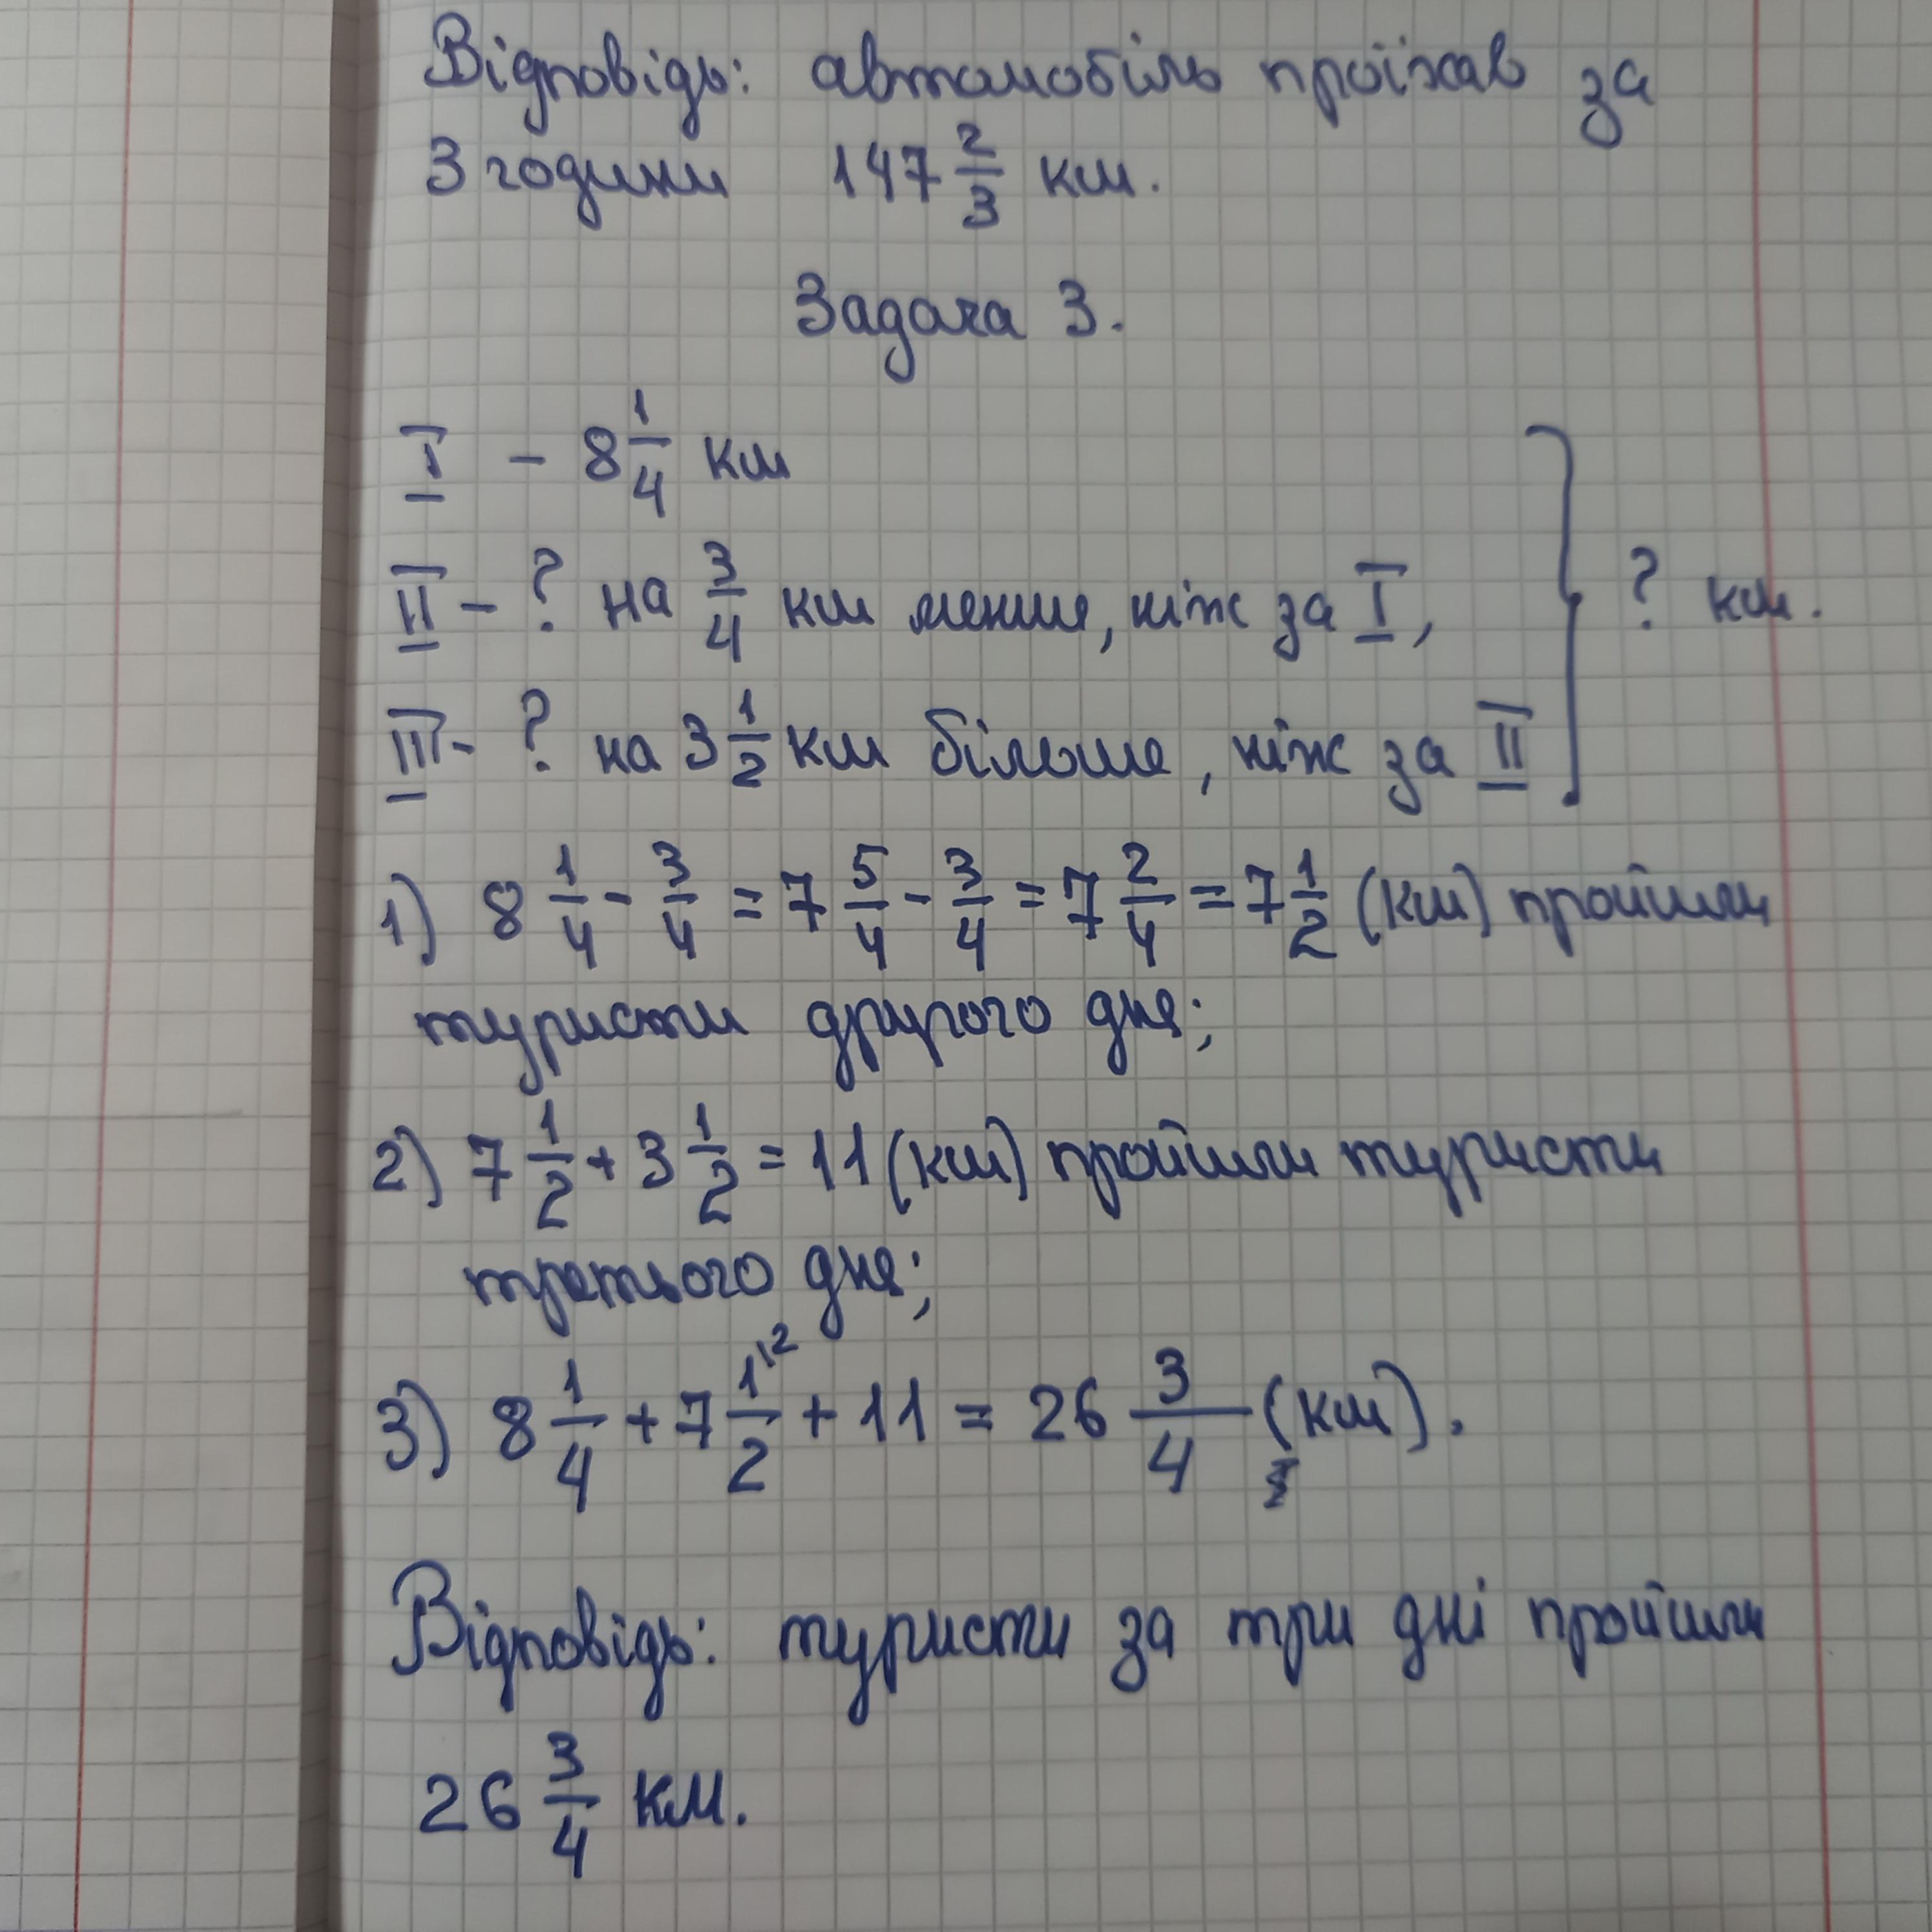 Відповідь: автомобіль проїхав за
3 години 147 2/3 км.
Задача 3.
I - 8 1/4 км
II - ? на 3/4 км менше, ніж за I,
III - ? на 3 1/2 км більше, ніж за II
? км.
1) 8 1/4 - 3/4 = 7 5/4 - 3/4 = 7 2/4 = 7 1/2 (км) пройшли
туристи другого дня;
2) 7 1/2 + 3 1/2 = 11 (км) пройшли туристи
третього дня;
3) 8 1/4 + 7 1\2/2 + 11 = 26 3/4 (км).
Відповідь: туристи за три дні пройшли
26 3/4 км.